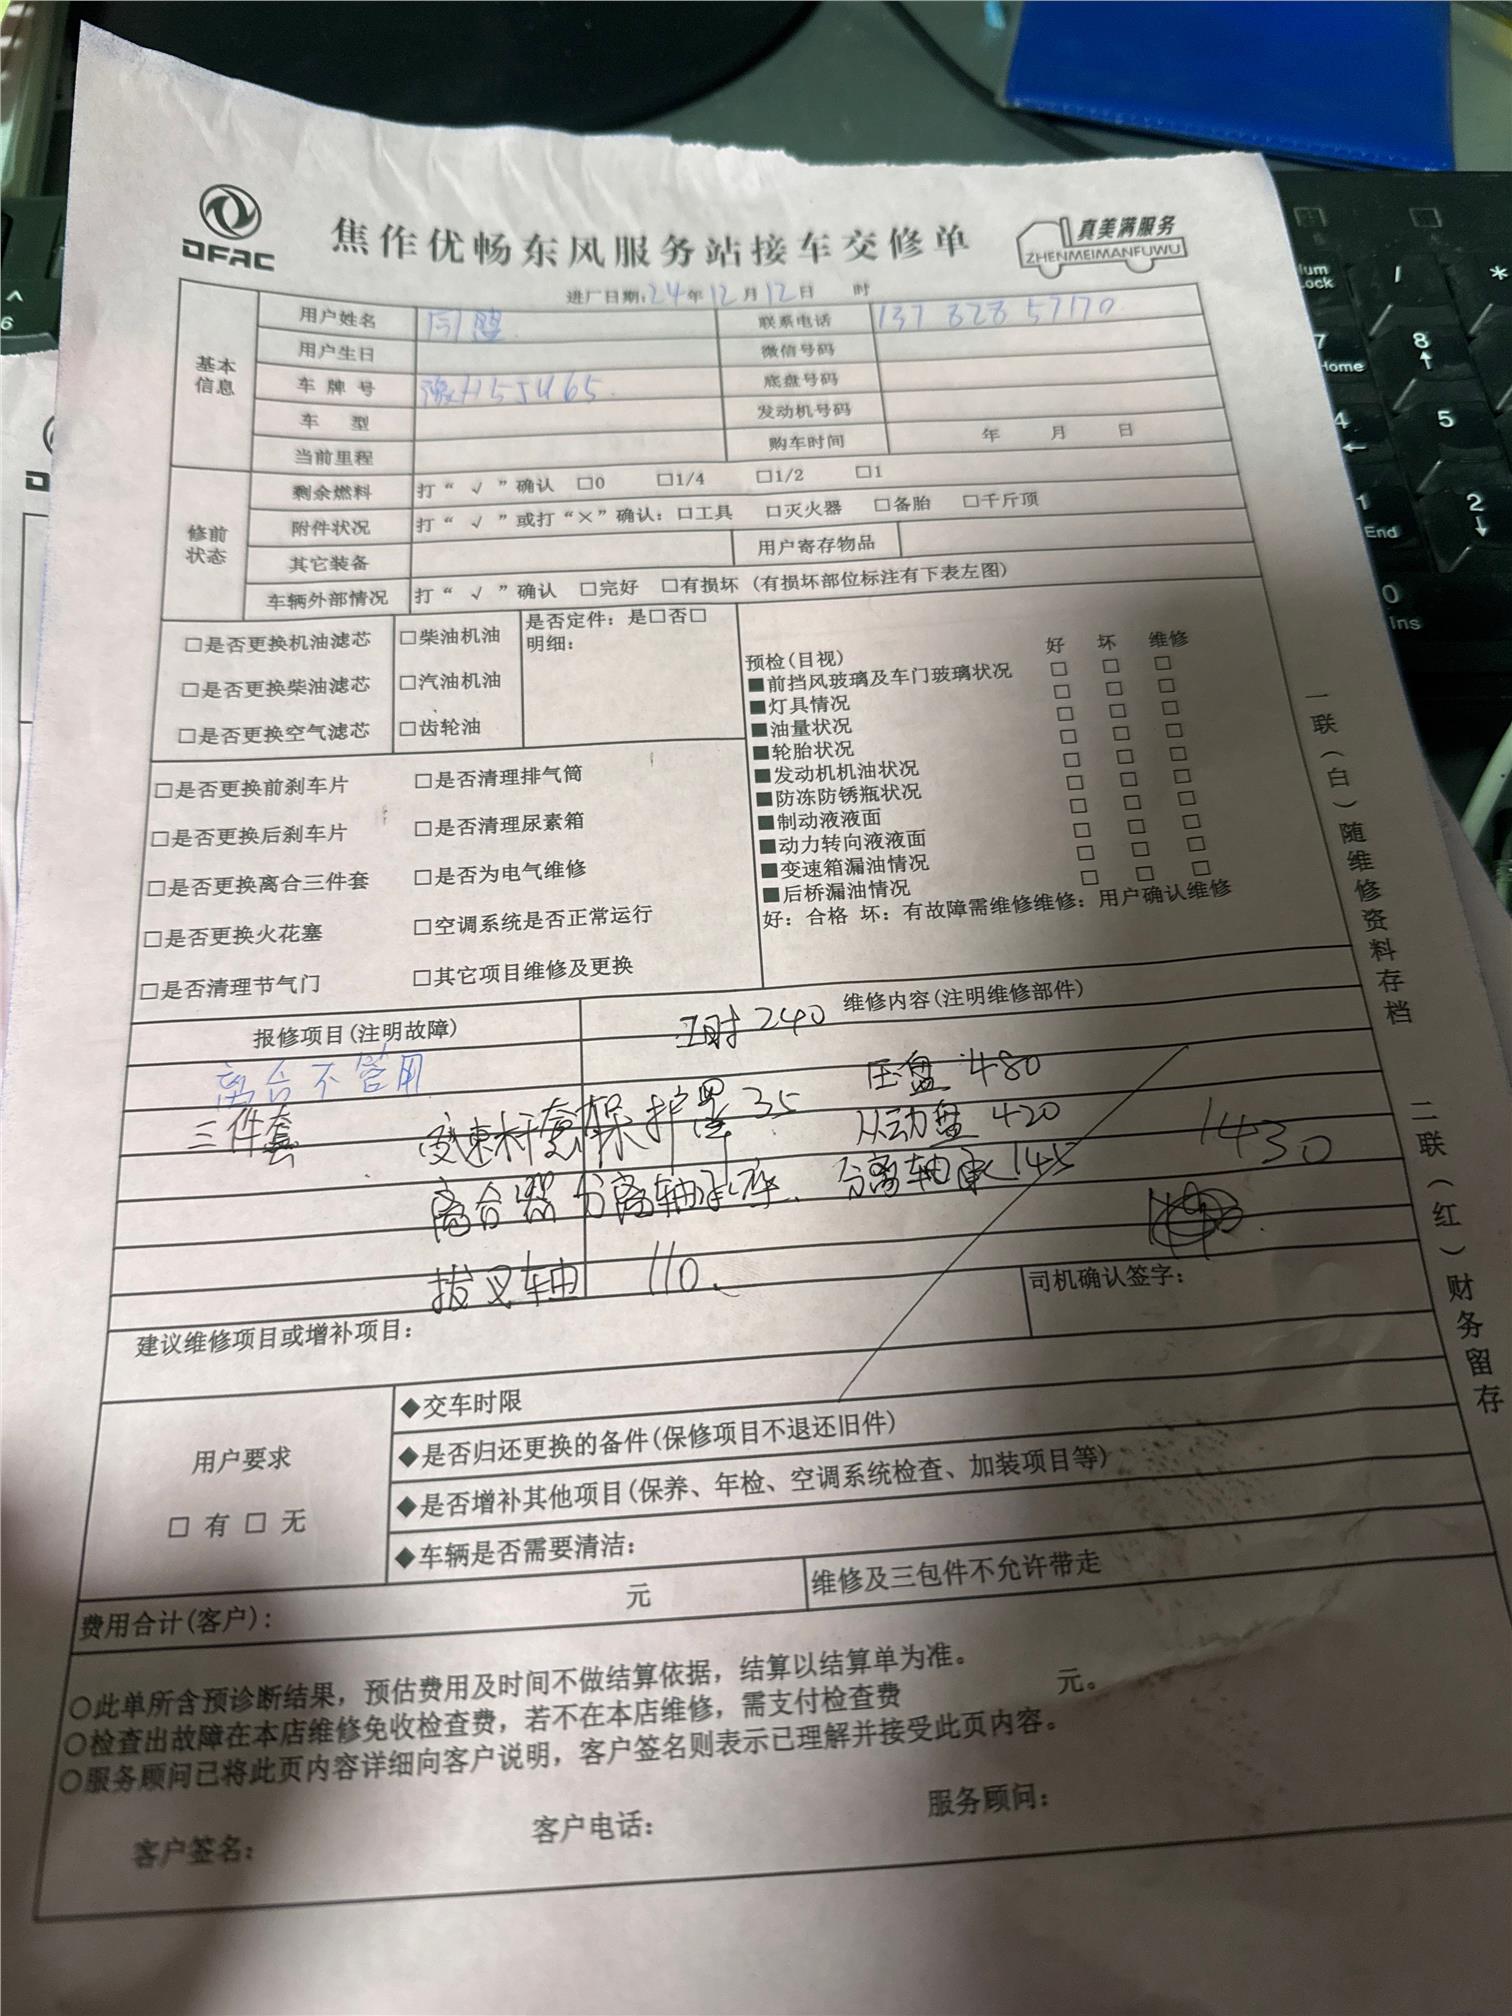 DFAC
焦作优畅东风服务站接车交修单
真美满服务
ZHENMEIMANFUWU
进厂日期:24年12月12日 时
基本信息
用户姓名 联系电话 137 828 57170
用户生日 微信号码
车牌号 豫H5J465 底盘号码
车 型 发动机号码
当前里程 购车时间 年 月 日
修前状态
剩余燃料 打“√”确认 □0 □1/4 □1/2 □1
附件状况 打“√”或打“×”确认:□工具 □灭火器 □备胎 □千斤顶
其它装备 用户寄存物品
车辆外部情况 打“√”确认 □完好 □有损坏 (有损坏部位标注有下表左图)
□是否更换机油滤芯 □柴油机油
□是否更换柴油滤芯 □汽油机油
□是否更换空气滤芯 □齿轮油
是否定件:是□否□
明细:
□是否更换前刹车片 □是否清理排气筒
□是否更换后刹车片 □是否清理尿素箱
□是否更换离合三件套 □是否为电气维修
□是否更换火花塞 □空调系统是否正常运行
□是否清理节气门 □其它项目维修及更换
预检(目视) 好 坏 维修
■前挡风玻璃及车门玻璃状况 □ □ □
■灯具情况 □ □ □
■油量状况 □ □ □
■轮胎状况 □ □ □
■发动机机油状况 □ □ □
■防冻防锈瓶状况 □ □ □
■制动液液面 □ □ □
■动力转向液液面 □ □ □
■变速箱漏油情况 □ □ □
■后桥漏油情况 □ □ □
好:合格 坏:有故障需维修维修:用户确认维修
报修项目(注明故障) 维修内容(注明维修部件)
工时 240
离合不管用 压盘 480
三件套 变速杆套保护罩 35 从动盘 420
离合器分离轴承座、分离轴承 145 1430
拔叉轴 110、
建议维修项目或增补项目: 司机确认签字:
用户要求
□ 有 □ 无
◆交车时限
◆是否归还更换的备件(保修项目不退还旧件)
◆是否增补其他项目(保养、年检、空调系统检查、加装项目等)
◆车辆是否需要清洁:
费用合计(客户): 元 维修及三包件不允许带走
○此单所含预诊断结果,预估费用及时间不做结算依据,结算以结算单为准。
○检查出故障在本店维修免收检查费,若不在本店维修,需支付检查费 元。
○服务顾问已将此页内容详细向客户说明,客户签名则表示已理解并接受此页内容。
客户签名: 客户电话: 服务顾问:
一联(白)随维修资料存档
二联(红)财务留存